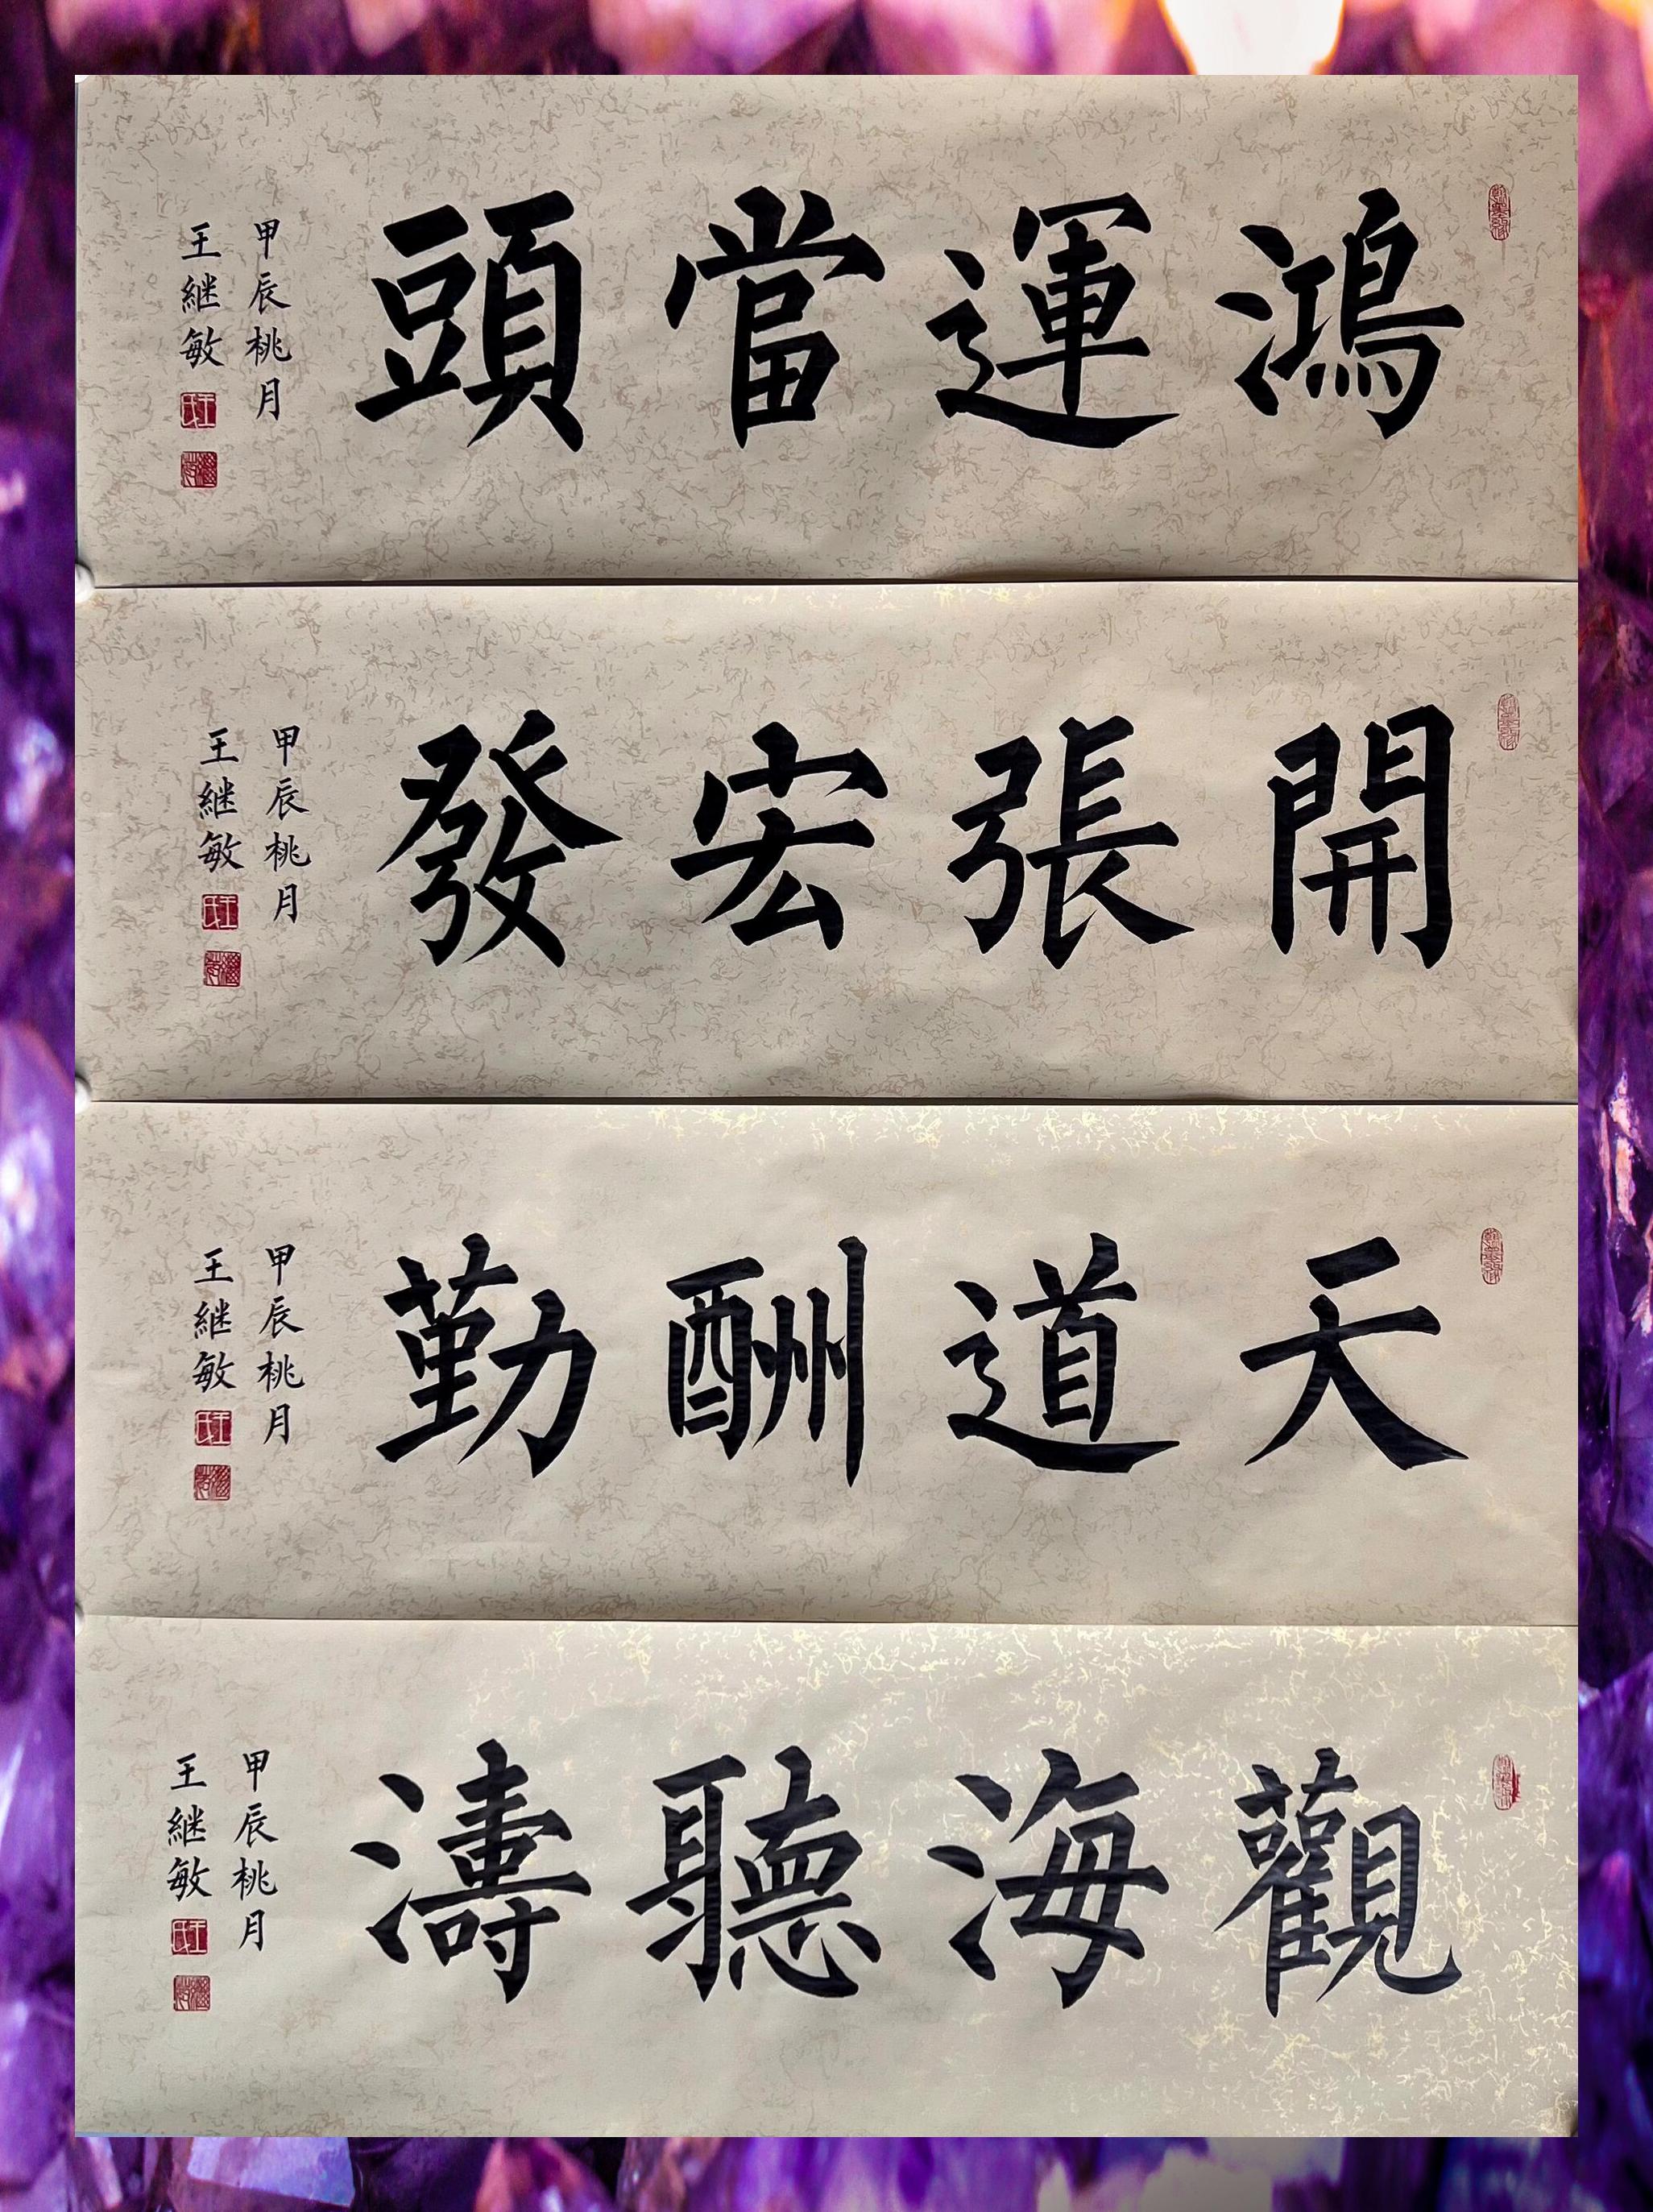 鴻運當頭
甲辰桃月
王継敏
開張宏發
甲辰桃月
王継敏
天道酬勤
甲辰桃月
王継敏
觀海聽濤
甲辰桃月
王継敏